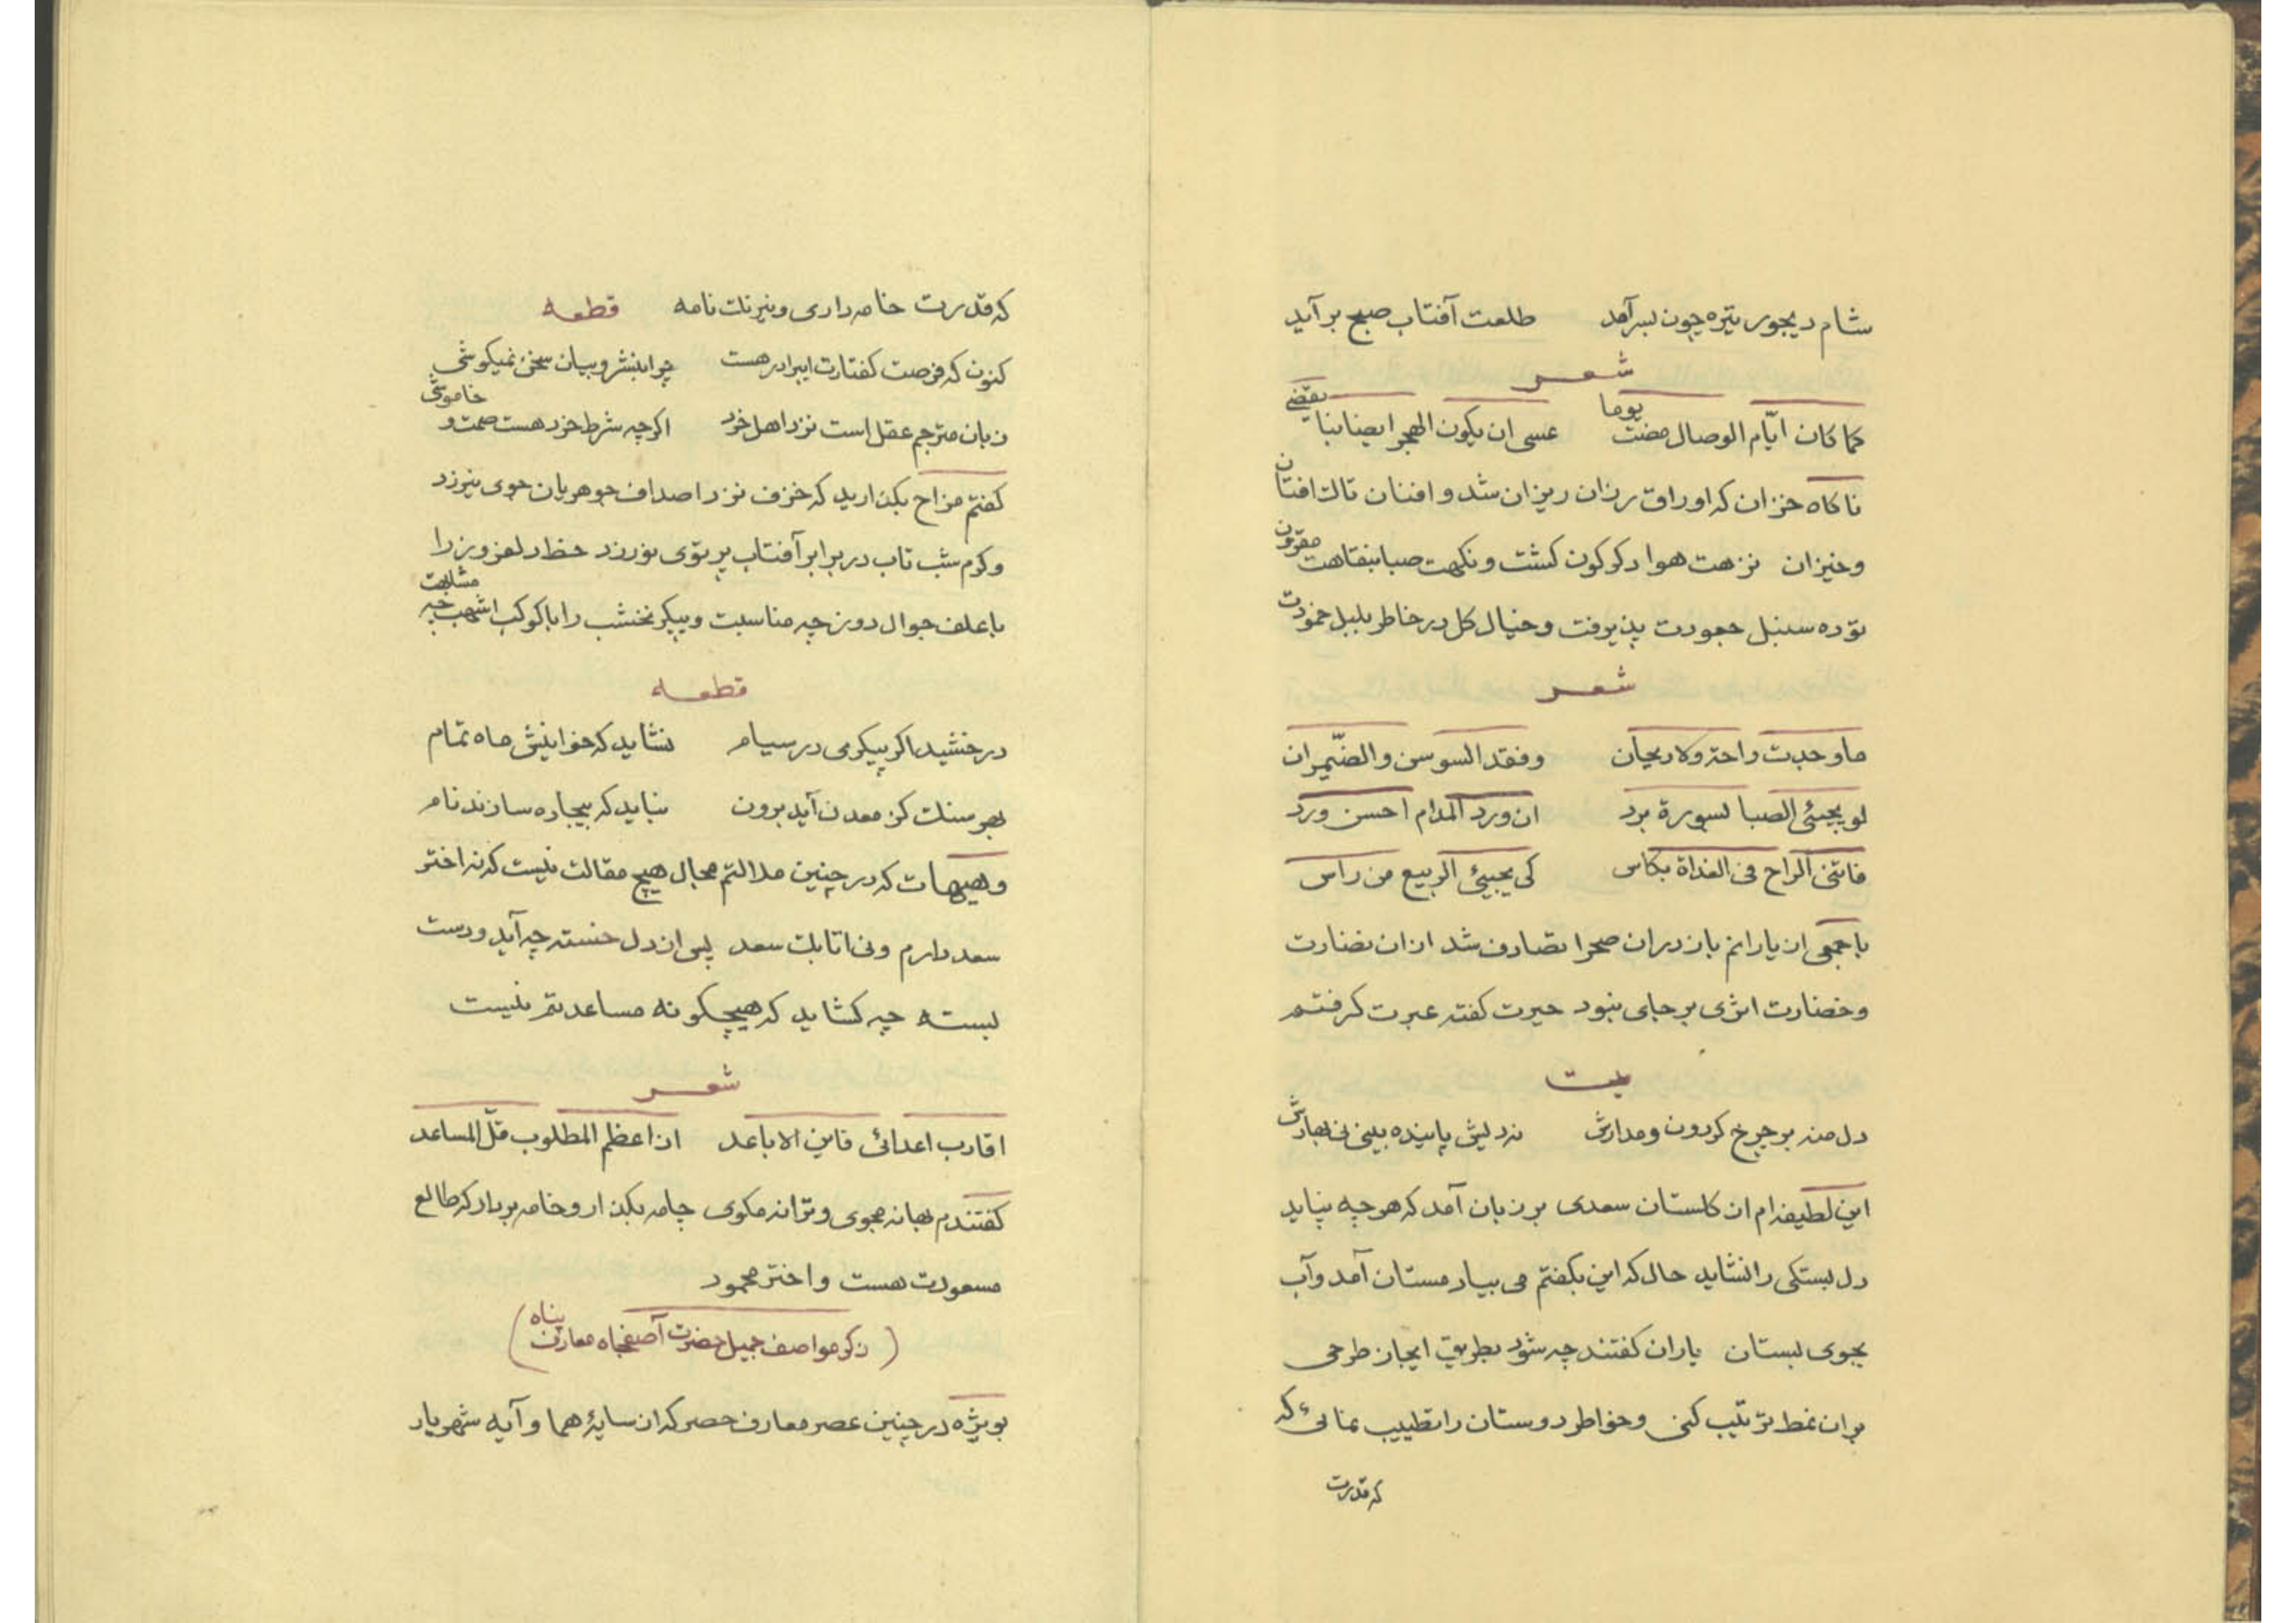 شام دیجور تیره چون بسر آمد طلعت آفتاب صبح بر آید
شعر
کما کان ایّام الوصال مضت یوما عسی ان یکون الهجر ایضا بنا یقضی
ناکاه خزان که اوراق رزان ریزان شد و افنان تالت افتان
وخیزان نزهت هوا دکرکون کشت ونکهت صبا بنقاهت مقرون
توده سنبل جعودت پذیرفت وخیال کل در خاطر بلبل خمودت
شعر
ما وجدت راحة ولا ریحان وفقد السوسن والضّیمران
لو یجیئی الصبا بسورة برد ان ورد المدام احسن ورد
فاتنی الراح فی الغداة بکاس کی یجیئی الربیع من راس
با جمعی از یارانم باز دران صحرا تصادف شد ازان نضارت
وخضارت اثری بر جای نبود حیرت کفته عبرت کرفتم
بیت
دل منه بر چرخ کردون ومدارش نه دیش پاینده بینی نی بهارش
این لطیفه ام از کلستان سعدی بر زبان آمد که هر چه نپاید
دل بستکی را نشاید حال که این بکفتم می بیاد مستان آمد وآب
بجوی بستان یاران کفتند چه شود بطریق ایجاز طرحی
بران نمط ترتیب کنی وخواطر دوستان را تطییب نمائی که
که قدرت
که قدرت خامه داری ونیرنک نامه قطعه
کنون که فرصت کفتارت ایبرادر هست چرا بنشر وبیان سخن نمیکوشی
زبان مترجم عقل است نزد اهل خرد اکرچه شرط خرد هست صمت و خاموشی
کفتم مزاح بکذارید که خزف نزد اصداف جوهریان جوی نیرزد
وکرم شب تاب در برابر آفتاب پرتوی نورزد خط دلفروز را
با علف جوال دوز چه مناسبت وپیکر نخشب را با کوکب اشهب چه مشابهت
قطعه
درخشید اکر پیکری در سیام نشاید که خوانیش ماه تمام
بهر سنک کز معدن آید برون نباید که بیجاده سازند نام
وهیهات که در چنین ملالتم مجال هیچ مقالت نیست که نه اختر
سعد دارم ونی اتابک سعد پس از دل خسته چه آید ودست
بسته چه کشاید که هیچکونه مساعدتم نیست
شعر
اقارب اعدائی فاین الاباعد اذا عظم المطلوب قلّ المساعد
کفتندم بهانه مجوی وترانه مکوی چامه بکذار وخامه بردار که طالع
مسعودت هست واختر محمود
(ذکر مواصف جمیل حضرت آصفجاه معارف پناه)
بویژه در چنین عصر معارف حصر که از سایهٔ هما وآیه شهریار